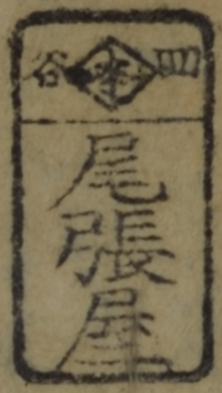 四谷
尾張屋